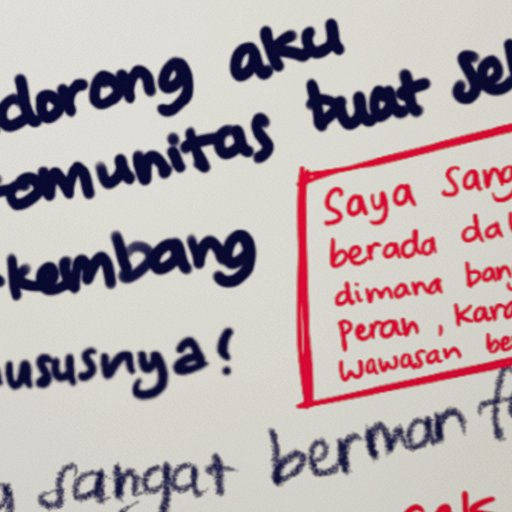 dorong aku
omunitas buat sel
kembang
ususnya!
Saya sang
berada dal
dimana ban
peran, kara
wawasan be
sangat berman